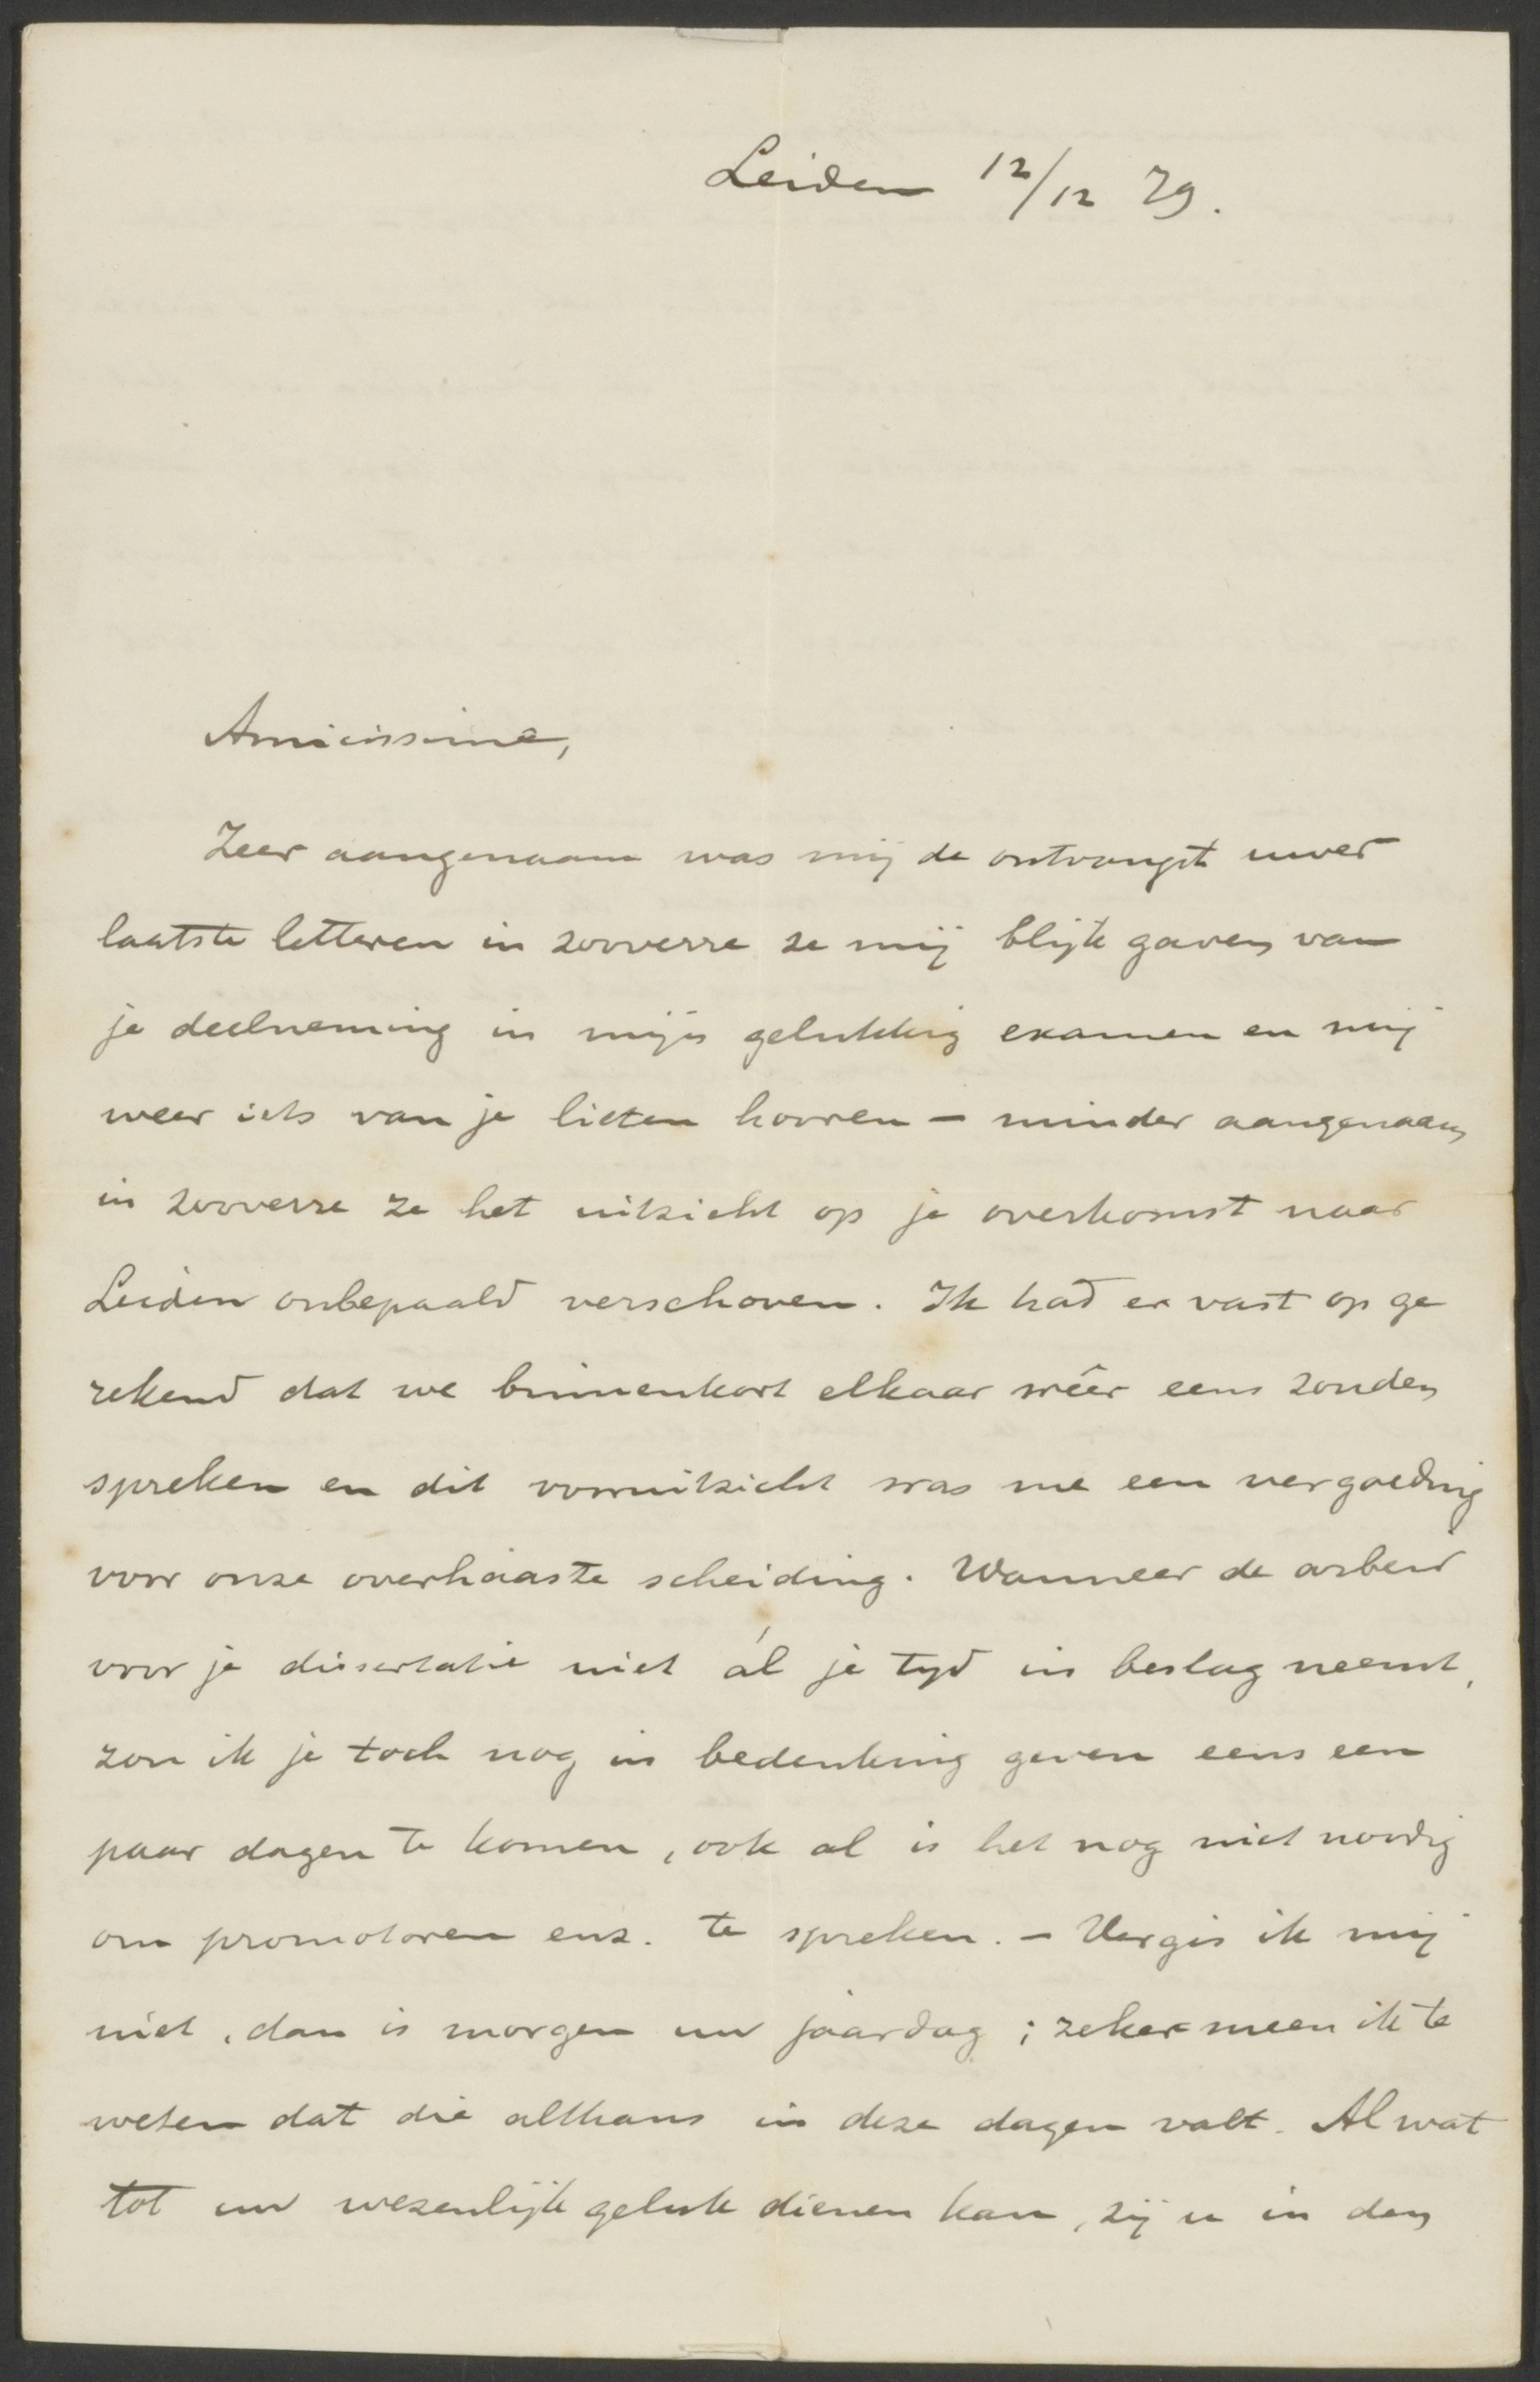 Leiden 12/12 79.
Amicissime,
Zeer aangenaam was mij de ontvangst uwer
laatste letteren in zooverre ze mij blijk gaven van
je deelneming in mijn gelukkig examen en mij
weer iets van je lieten hooren – minder aangenaam
in zooverre ze het uitzicht op je overkomst naar
Leiden onbepaald verschoven. Ik had er vast op ge
rekend dat we binnenkort elkaar wêer eens zouden
spreken en dit vooruitzicht was me een vergoeding
voor onze overhaaste scheiding. Wanneer de arbeid
voor je dissertatie niet ál je tijd in beslag neemt,
zou ik je toch nog in bedenking geven eens een
paar dagen te komen, ook al is het nog niet noodig
om promotoren enz. te spreken. – Vergis ik mij
niet, dan is morgen uw jaardag; zeker meen ik te
weten dat die althans in deze dagen valt. Al wat
tot uw wezenlijk geluk dienen kan, zij u in den